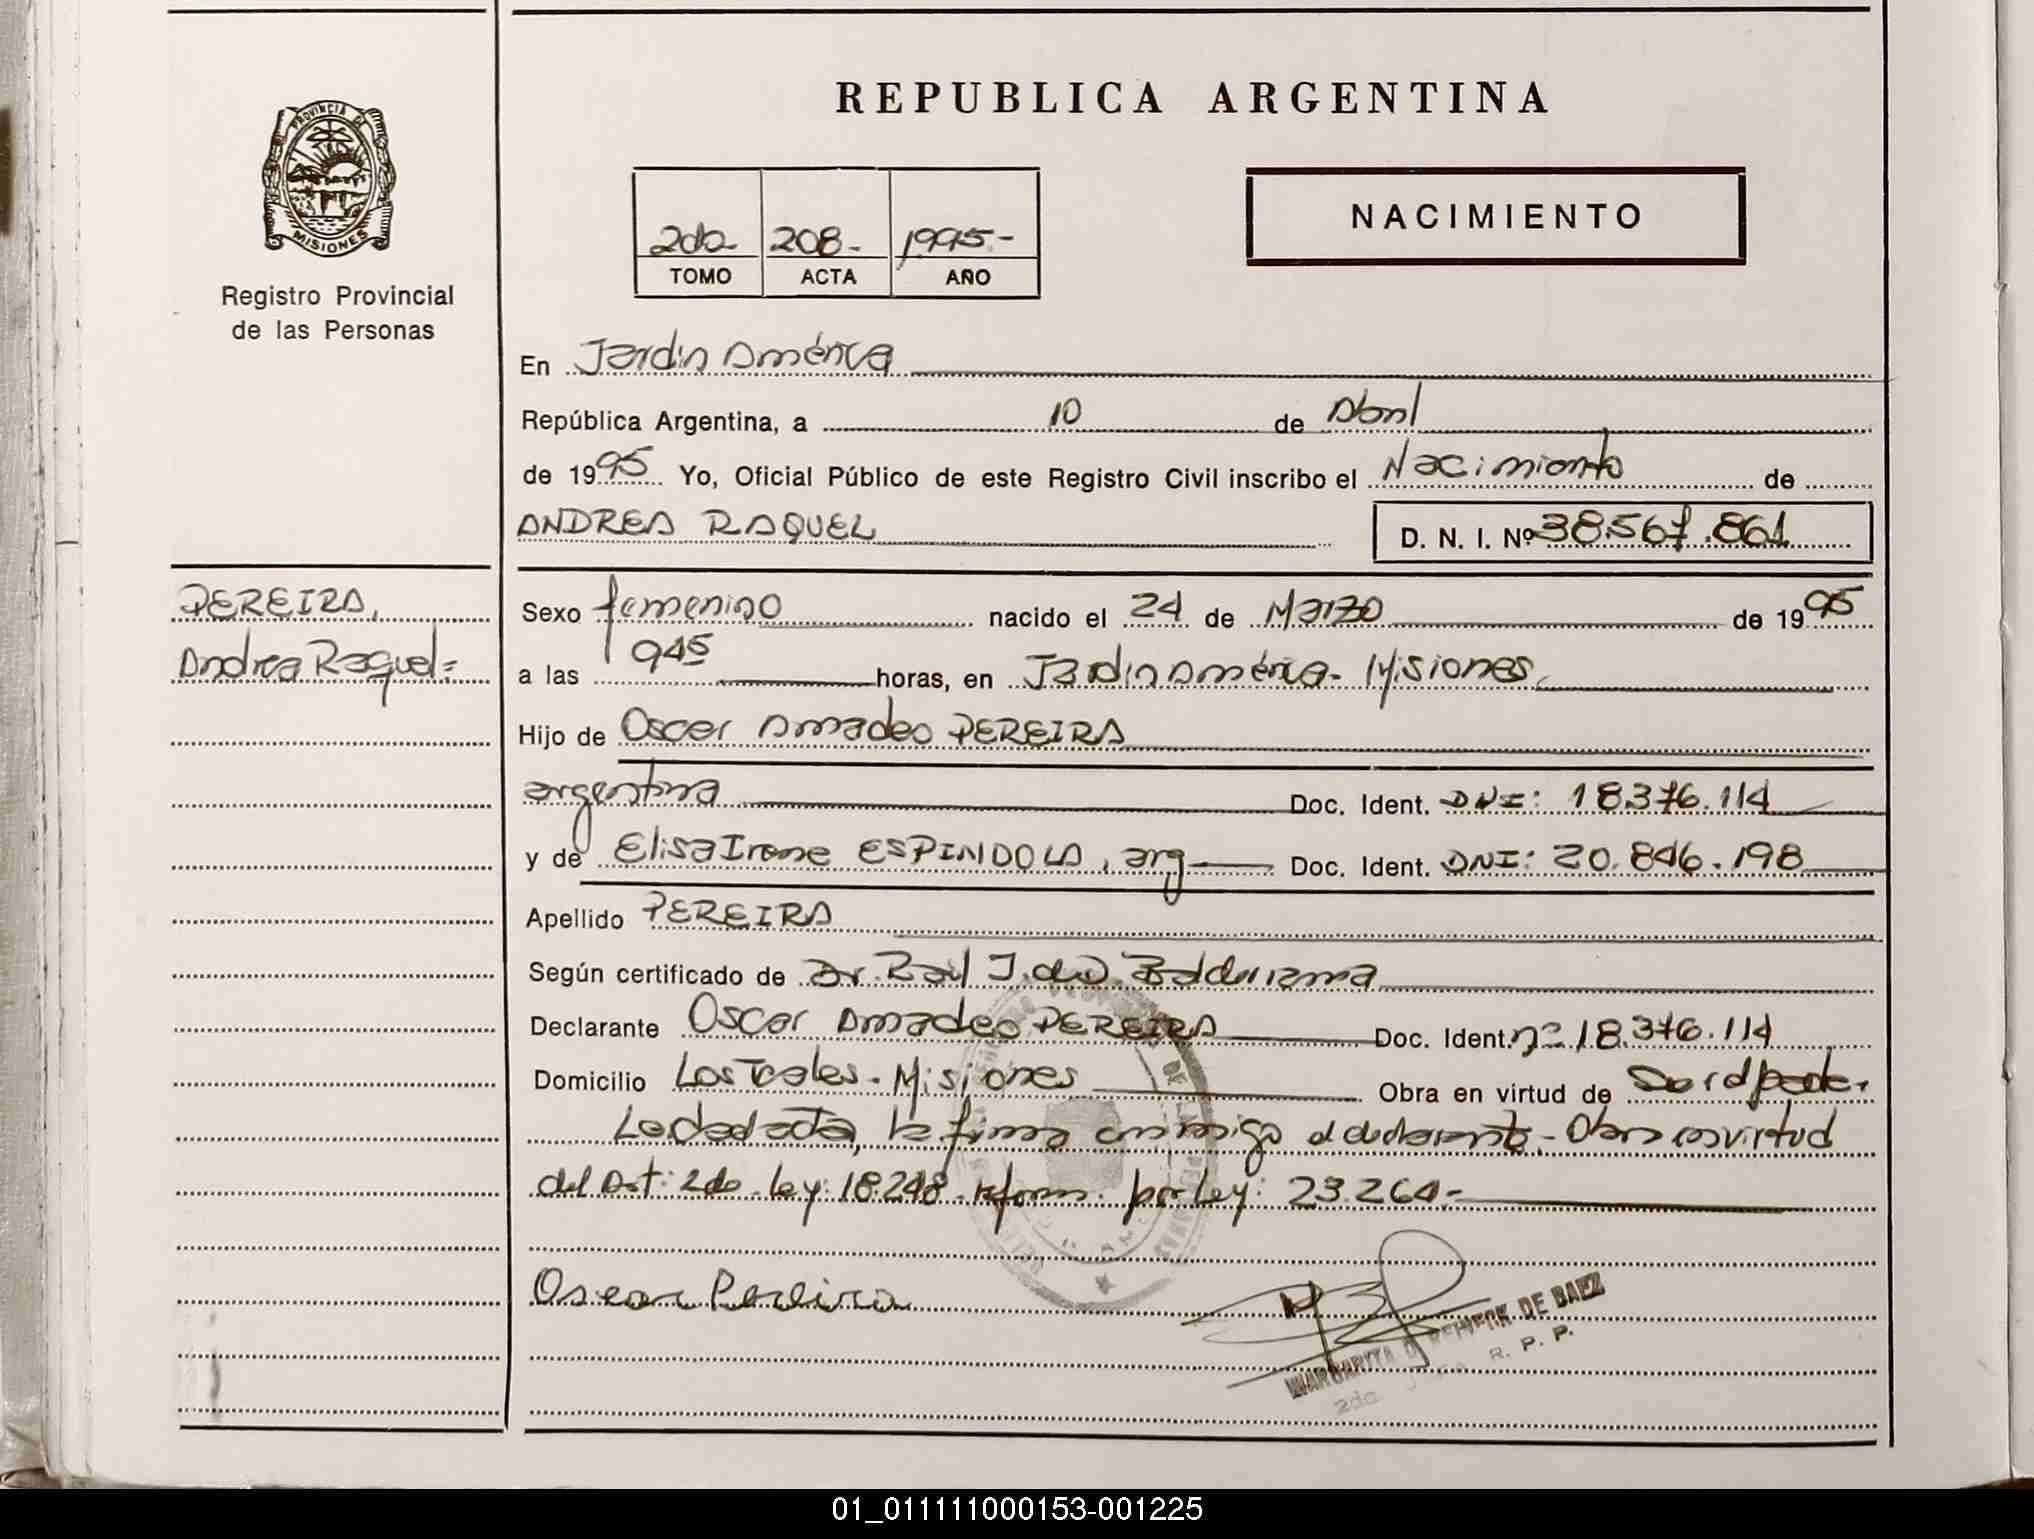 PROVINCIA DE
MISIONES
Registro Provincial
de las Personas
REPUBLICA ARGENTINA
2do 208- 1995.-
TOMO ACTA AÑO
NACIMIENTO
En Jardin América
República Argentina, a 10 de Abril
de 1995 Yo, Oficial Público de este Registro Civil inscribo el Nacimiento de
ANDREA RAQUEL D. N. I. Nº 38.567.861
PEREIRA,
Andrea Raquel=
Sexo femenino nacido el 24 de Marzo de 1995
a las 945 horas, en Jardin América- Misiones,
Hijo de Oscar Amadeo PEREIRA
argentina Doc. Ident. DNI: 18.376.114
y de Elisa Irene ESPINDOLA, arg Doc. Ident. DNI: 20.846.198
Apellido PEREIRA
Según certificado de Dr. Raúl J.
Declarante Oscar Amadeo PEREIRA Doc. Ident. nº 18.376.114
Domicilio Los Teales- Misiones Obra en virtud de
la firma conmigo el declarante- Obra en virtud
del Art: 2do ley: 18.248 reform. por ley: 23.264-
Oscar Pereira
MARGARITA REINECK DE BAEZ
2da R. P. P.
01_011111000153-001225